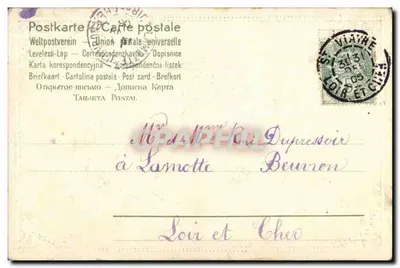 Postkarte - Carte postale
Weltpostverein - Union postale universelle
Levelező-Lap - Correspondenzkarte - Dopisnice
Karta korespondencyjna - Korespondenční-listek
Briefkaart - Cartolina postale - Post card - Brefkort
Открытое письмо - Дописна Карта
Tarjeta Postal
ST VIATRE
31
05
LOIR ET CHER
Mr et Mme Dupressoir
à Lamotte Beuvron
Loir et Cher